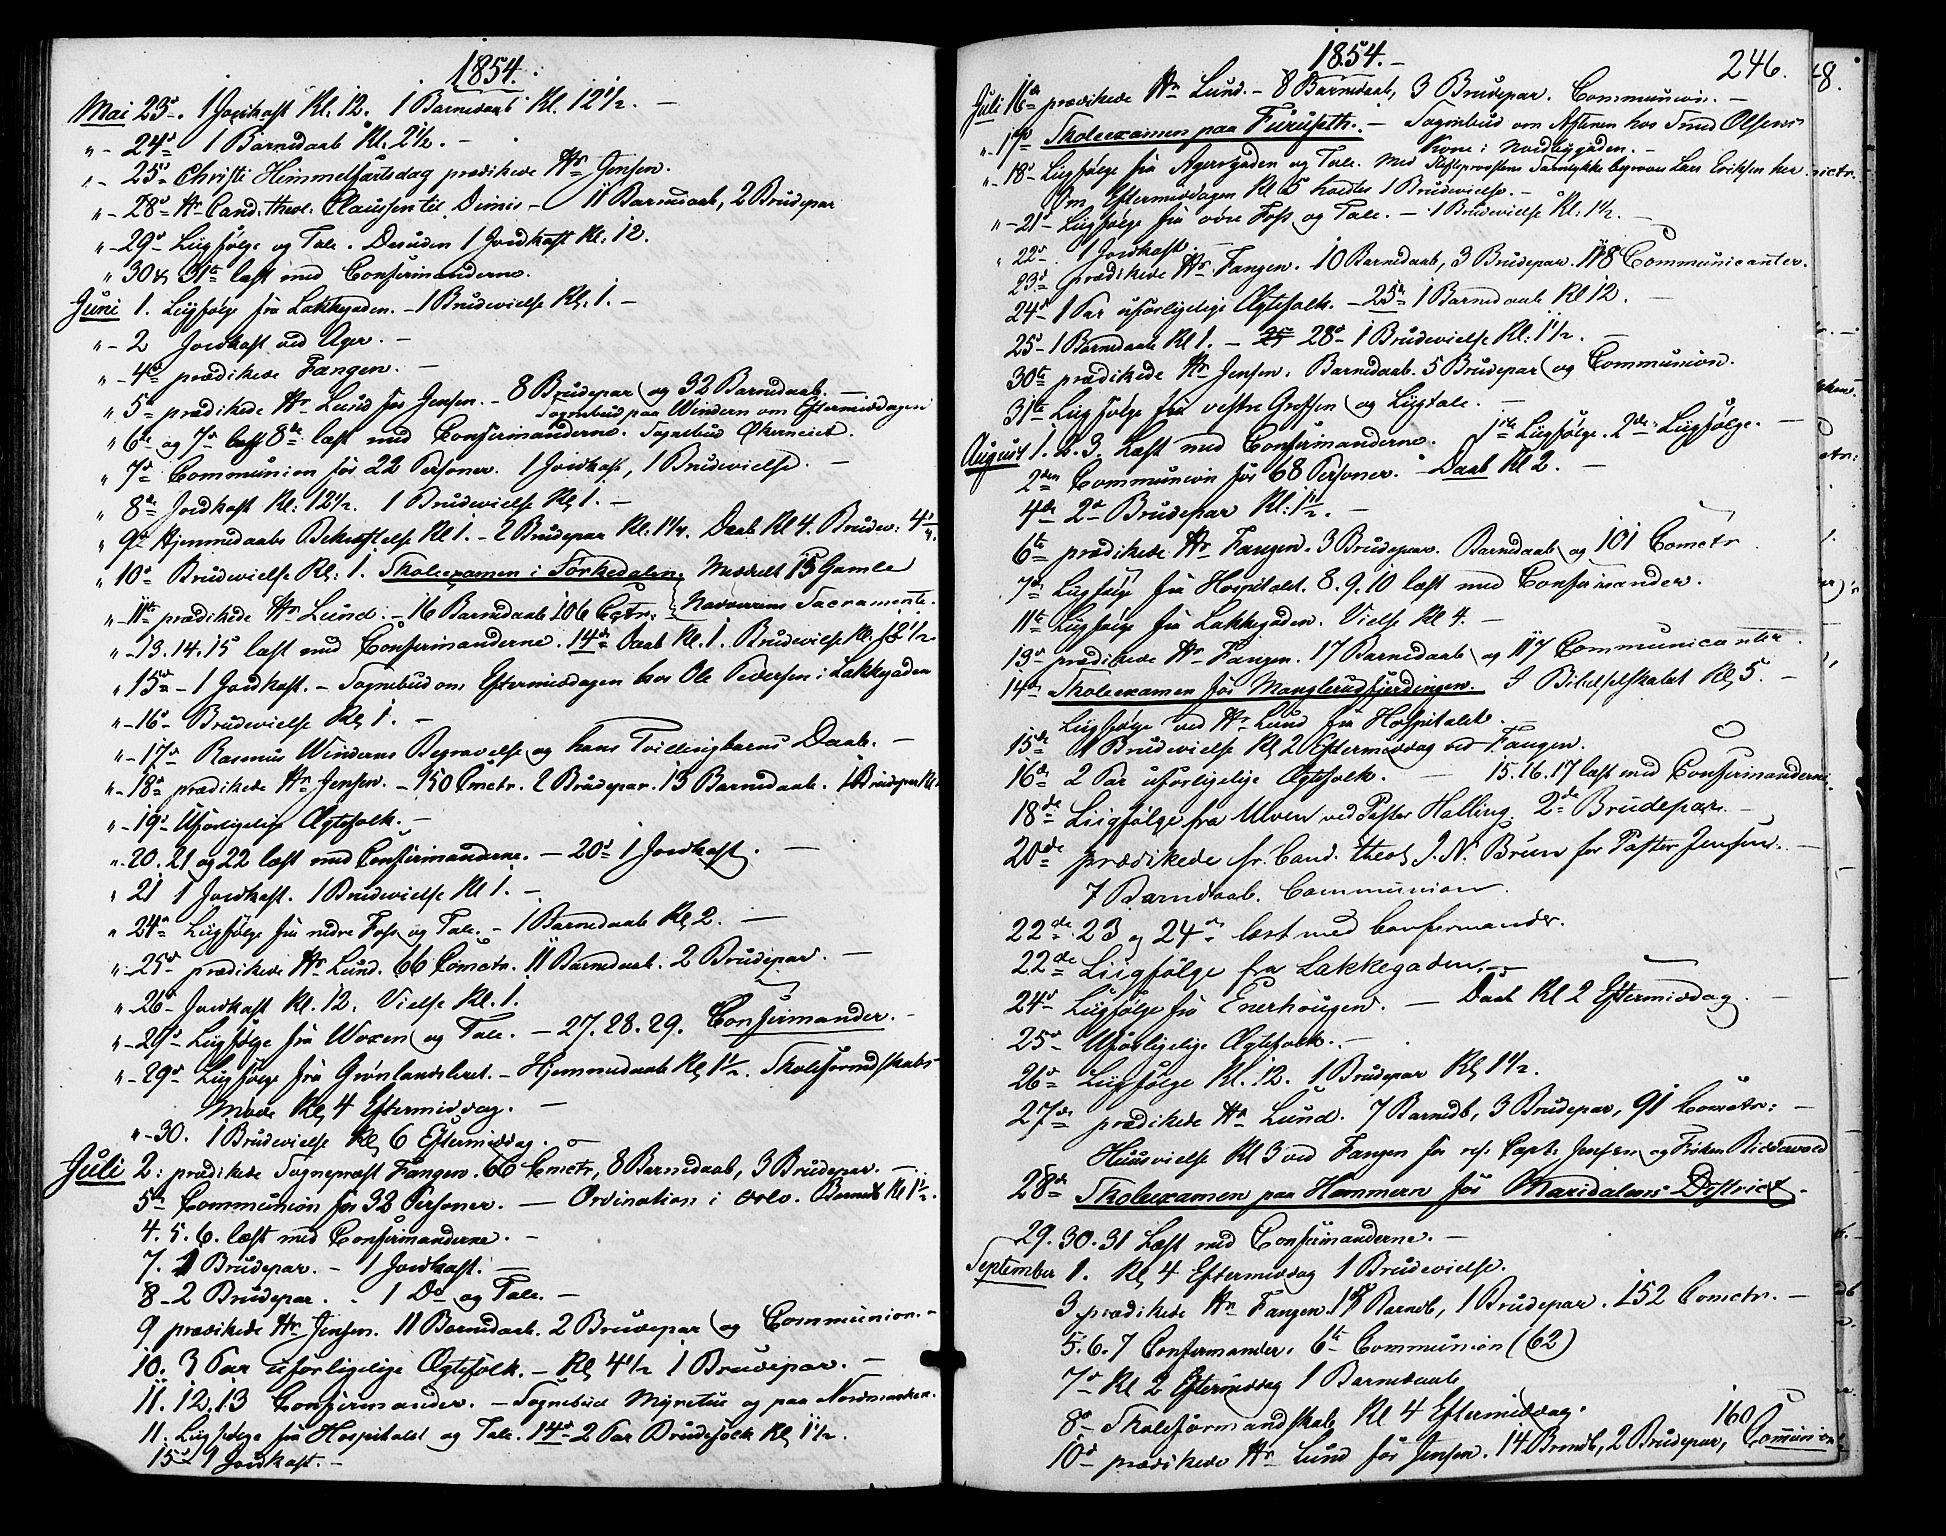 1854.
Mai 23de. 1 Jordkast Kl. 12. 1 Barnedaab Kl. 12 1/2. —
" - 24de 1 Barnedaab Kl. 2 1/2. —
" - 25de Christi Himmelfartsdag prædikede Hr Jensen.
" - 28de Hr Cand. theol. Claussen til Dimis - 11 Barnedaab, 2 Brudepar
" - 29de Liigfølge og Tale. Desuden 1 Jordkast Kl. 12.
" 30 & 31te læst med Confirmanderne.
Juni 1. Liigfølge fra Lakkegaden. - 1 Brudevielse Kl. 1. —
" - 2 Jordkast ved Ager. —
" - 4de prædikede Fangen. —
" 5te prædikede Hr Lund for Jensen. - 8 Brudepar og 32 Barnedaab. —
Sognebud paa Windern om Eftermiddagen
" 6te og 7de 8de læst med Confirmanderne. Sognebud Økerneiet.
" 7de Communion for 22 Personer. 1 Jordkast, 1 Brudevielse. —
" 8de Jordkast Kl. 12 1/2. 1 Brudevielse Kl 1. —
" 9de Hjemmedaabs Bekræftelse Kl 1. - 2 Brudepar Kl. 1 1/4. Daab Kl 4. Brudev:
" 10de Brudevielse Kl. 1. Skoleexamen i Sørkedalen, Meddelt 15 Gamle
" - 11te prædikede Hr Lund. - 16 Barnedaab 106 Cmtr. Nadverens Sacramente.
" - 13. 14. 15 læst med Confirmanderne. 14de Daab Kl. 1. Brudevielse Kl.
" 15de - 1 Jordkast. - Sognebud om Eftermiddagen hos Ole Pedersen i Lakkegaden
" - 16de Brudevielse Kl 1. —
" - 17de Rasmus Winderns Begravelse og hans Tvillingbarns Daab. —
" - 18de prædikede Hr Jensen. - 150 Cmctr. 2 Brudepar. 13 Barnedaab. 1 Brudepar Kl
" - 19de Uforligelige Ægtefolk. —
" - 20. 21 og 22 læst med Confirmanderne. — 20de 1 Jordkast. —
" 21 1 Jordkast. 1 Brudevielse Kl 1. —
" 24de Liigfølge fra nedre Foss og Tale. - 1 Barnedaab Kl 2. —
" - 25de prædikede Hr Lund. 66 Comctr. 11 Barnedaab. 2 Brudepar. —
" - 26de Jordkast Kl. 12. Vielse Kl. 1.
" - 29de Liigfølge fra Woxen og Tale. - 27. 28. 29. Confirmander. -
" - 29de Liigfølge fra Grønlandsleret. - Hjemmedaab Kl 1 1/2. Skoleformandskabs-
Møde Kl 4 Eftermiddag. —
" - 30. 1 Brudevielse Kl 6 Eftermiddag. —
Juli 2: prædikede Sognepræst Fangen. 66 Cmctr, 8 Barnedaab, 3 Brudepar. —
5te Communion for 32 Personer. — Ordination i Oslo. Barned: Kl 1 1/2.
4. 5. 6. læst med Confirmanderne. —
7. 1 Brudepar. - 1 Jordkast. —
8 - 2 Brudepar. 1 Do og Tale. —
9 prædikede Hr Jensen. 11 Barnedaab. 2 Brudepar og Communion. -
10. 3 Par uforligelige Ægtefolk. - Kl 4 1/2 1 Brudepar. —
11. 12. 13 Confirmander. - Sognebud Myretue og paa Nordmarken.
11. Liigfølge fra Hospitalet og Tale. 14de 2 Par Brudefolk Kl 1 1/2.
15de 1 Jordkast. —
1854. -
246.
Juli 16de prædikede Hr Lund. - 8 Barnedaab, 3 Brudepar. Communion. —
" - 17de Skoleexamen paa Furuseth. - Sognebud om Aftenen hos Olsens
Kone i Nordbygaden. -
" - 18de Liigfølge fra Agersgaden og Tale. Med Stiftsprovstens Samtykke begroves Lars Eriksen her
Om Eftermiddagen Kl 5 holdtes 1 Brudevielse. -
" - 21de Liigfølge fra øvre Foss og Tale. - 1 Brudevielse Kl: 1 1/2. -
" 22de. 1 Jordkast. -
23de prædikede Hr Fangen. 10 Barnedaab, 3 Brudepar. 118 Communicanter.
24de 1 Par uforligelige Ægtefolk. - 25de 1 Barnedaab Kl 12. —
25 - 1 Barnedaab Kl 1. - 28de - 1 Brudevielse Kl: 1 1/2. —
30te prædikede Hr Jensen. Barnedaab. 5 Brudepar og Communion.
31te Liigfølge fra vestre Grefsen og Liigtale. —
August 1. 2. 3. Læst med Confirmanderne. 1ste Liigfølge. 2de Liigfølge. —
2den Communion for 68 Personer. - Daab Kl 2. —
4de 2de Brudepar Kl: 1 1/2. —
6te prædikede Hr Fangen. 3 Brudepar. Barnedaab og 101 Comctr
7de Liigfølge fra Hospitalet. 8. 9. 10 læst med Confirmander.
11te Liigfølge fra Lakkegaden. Vielse Kl 4. —
13de prædikede Hr Fangen. 17 Barnedaab og 117 Communicanter.
14de Skoleexamen for Manglerudfjerdingen. I Bibelselskabet Kl 5. —
Liigfølge ved Hr Lund fra Hospitalet.
15de 1 Brudevielse Kl 2 Eftermiddag ved Fangen.
16de 2 Par uforligelige Ægtefolk. — 15. 16. 17 læst med Confirmanderne.
18de Liigfølge fra Ulven ved Pastor Halling. 2de Brudepar. -
20de prædikede hr. Cand. theol. J. N. Brun for Pastor Jensen. -
7 Barnedaab. Communion.
22de. 23 og 24de læst med Confirmander.
22de Liigfølge fra Lakkegaden. —
24de Liigfølge fra Enerhougen. — Daab Kl 2 Eftermiddag. —
25de Uforligelige Ægtefolk. -
26de Liigfølge Kl. 12. 1 Brudepar Kl 1 1/2.
27de prædikede Hr Lund. 7 Barnedb, 3 Brudepar, 91 Comctr: —
Huusvielse Kl 3 ved Fangen for Capt: Jensen og Frøken Riddervold
28de Skoleexamen paa Hammern for Maridalens District. -
29. 30. 31 Læst med Confirmanderne. —
September 1. Kl 4 Eftermiddag 1 Brudevielse.
3 prædikede Hr Fangen. Barnedb, 1 Brudepar. 152 Comctr. —
5. 6. 7 Confirmander. 6te Communion (62)
7de Kl 2 Eftermiddag 1 Barnedaab
8de Skoleformandskab Kl 4 Eftermiddag.
10de prædikede Hr Lund for Jensen. 14 Brnedb, 2 Brudepar, 160 Comunion